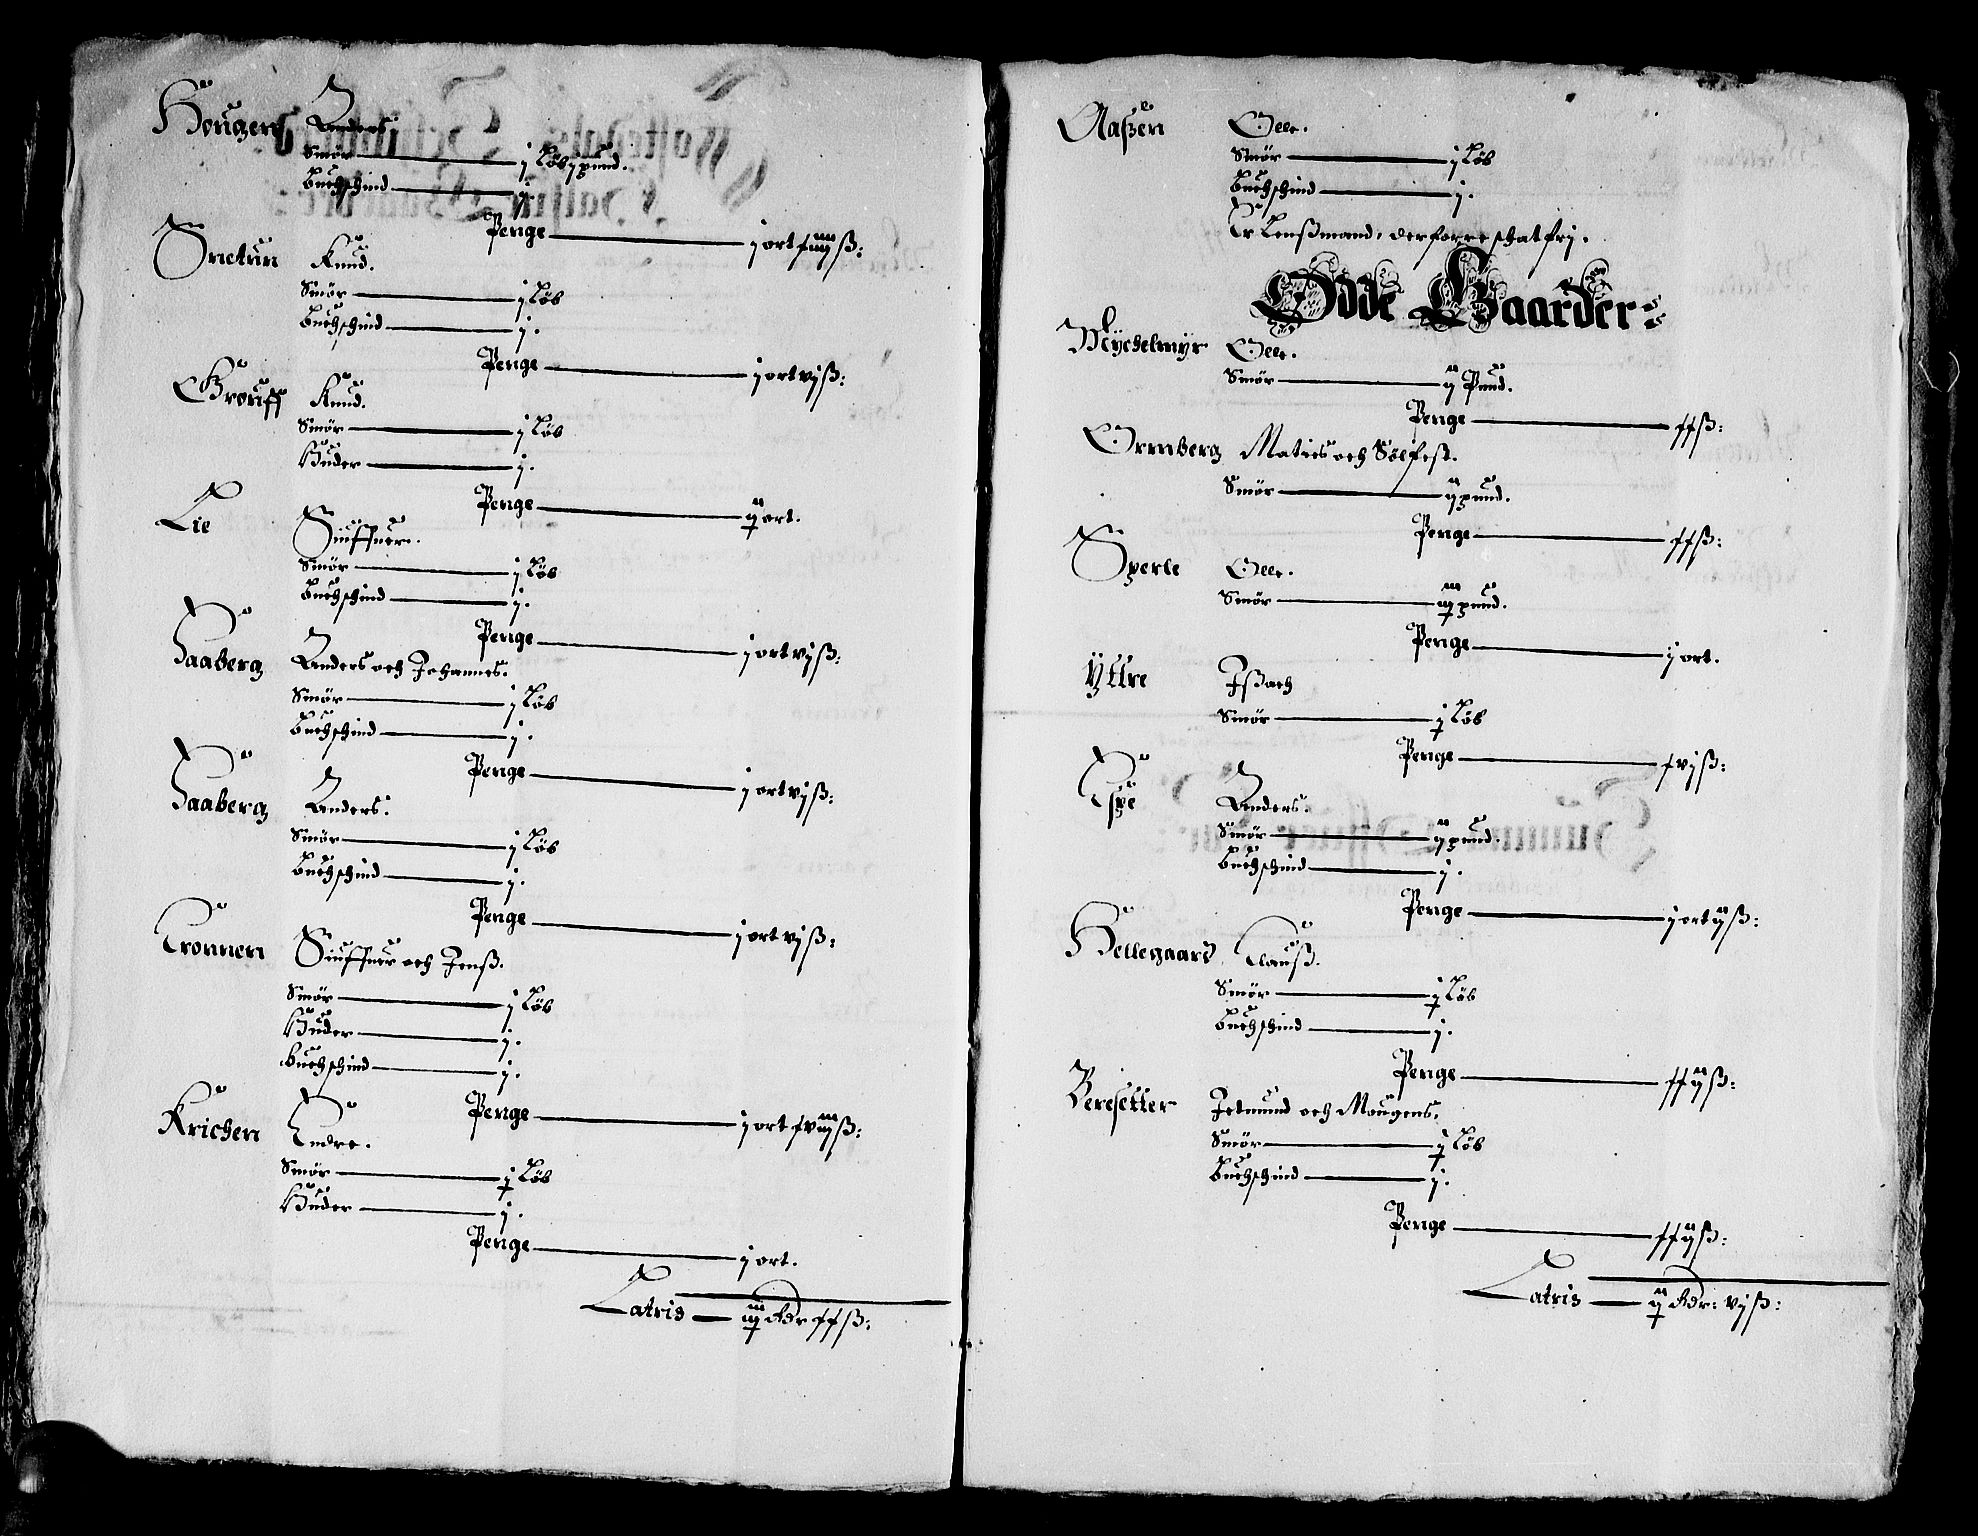 Hougens Anders.
Smør j Løb j pund.
Buchschind j.
Penge j ort
Snetun Knud.
Smør j Løb
Buchschind j.
Penge j ort vj ß:
Grouff Knud.
Smør j Løb
Huder j.
Penge ij ort.
Lie Siuffuer.
Smør j Løb
Buchschind j.
Penge j ort vj ß:
Faaberg Anders och Johannes.
Smør j Løb
Buchschind j.
Penge j ort vj ß:
Faaberg Anders.
Smør j Løb
Buchschind j.
Penge j ort vj ß:
Cronnen Siuffuer och Jenß.
Smør j Løb
Huder j.
Buchschind j.
Penge j ort xviij ß:
Krichen Endre.
Smør j Løb
Huder j.
Penge j ort.
Latris iij Rdr xx ß:
Aaßen Oelle.
Smør j Løb
Buchschind j.
Er Lenßmand, derforre schatfrj.
Ødde Gaarder:
Mychelmyr Oelle.
Smør ij Pund.
Penge xx ß:
Ormberg Maties och Sølfest.
Smør ij pund.
Penge xx ß:
Sperle Oelle.
Smør iij pund.
Penge j ort.
Yttre Jßach
Smør j Løb
Penge xvj ß:
Espe Anders.
Smør ij pund.
Buchschind j.
Penge j ort ij ß:
Hellegaard Clauß.
Smør j Løb
Buchschind j.
Penge xxij ß:
Beresetter Jetmund och Mougens.
Smør j Løb
Buchschind j.
Penge xxij ß:
Latris ij Rdr: vj ß: